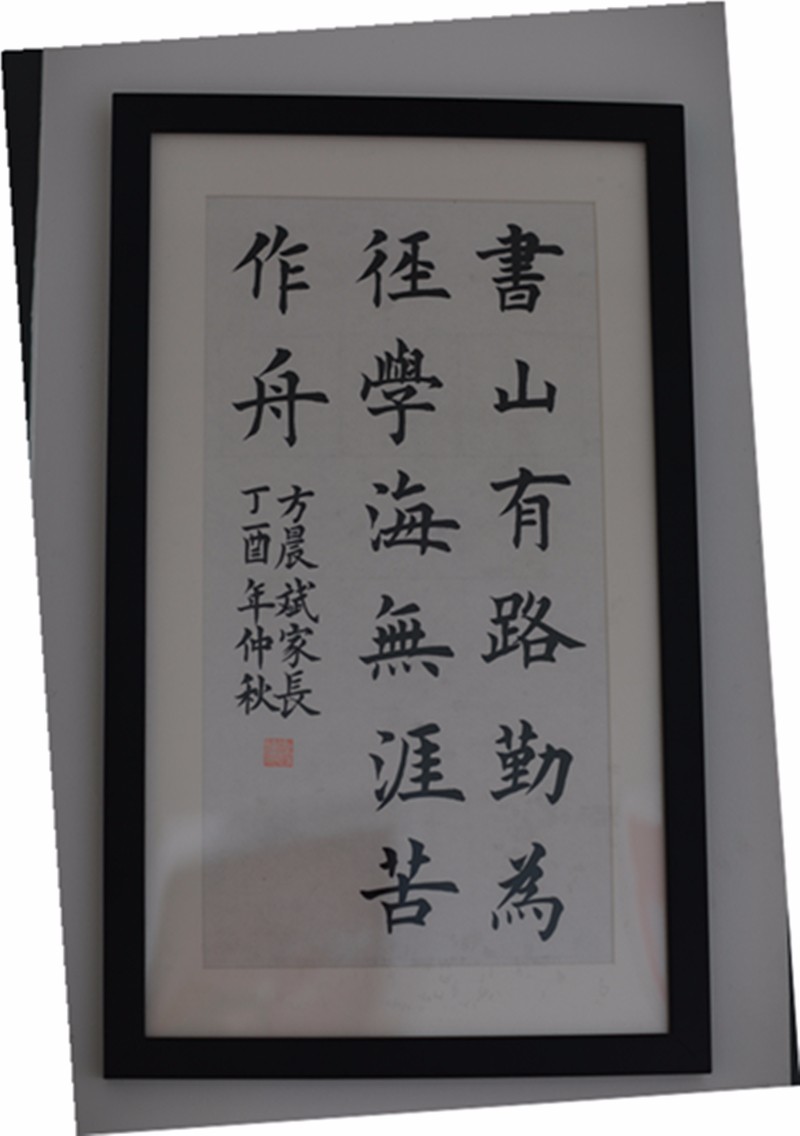 書山有路勤為
徑學海無涯苦
作舟
方晨斌家長
丁酉年仲秋